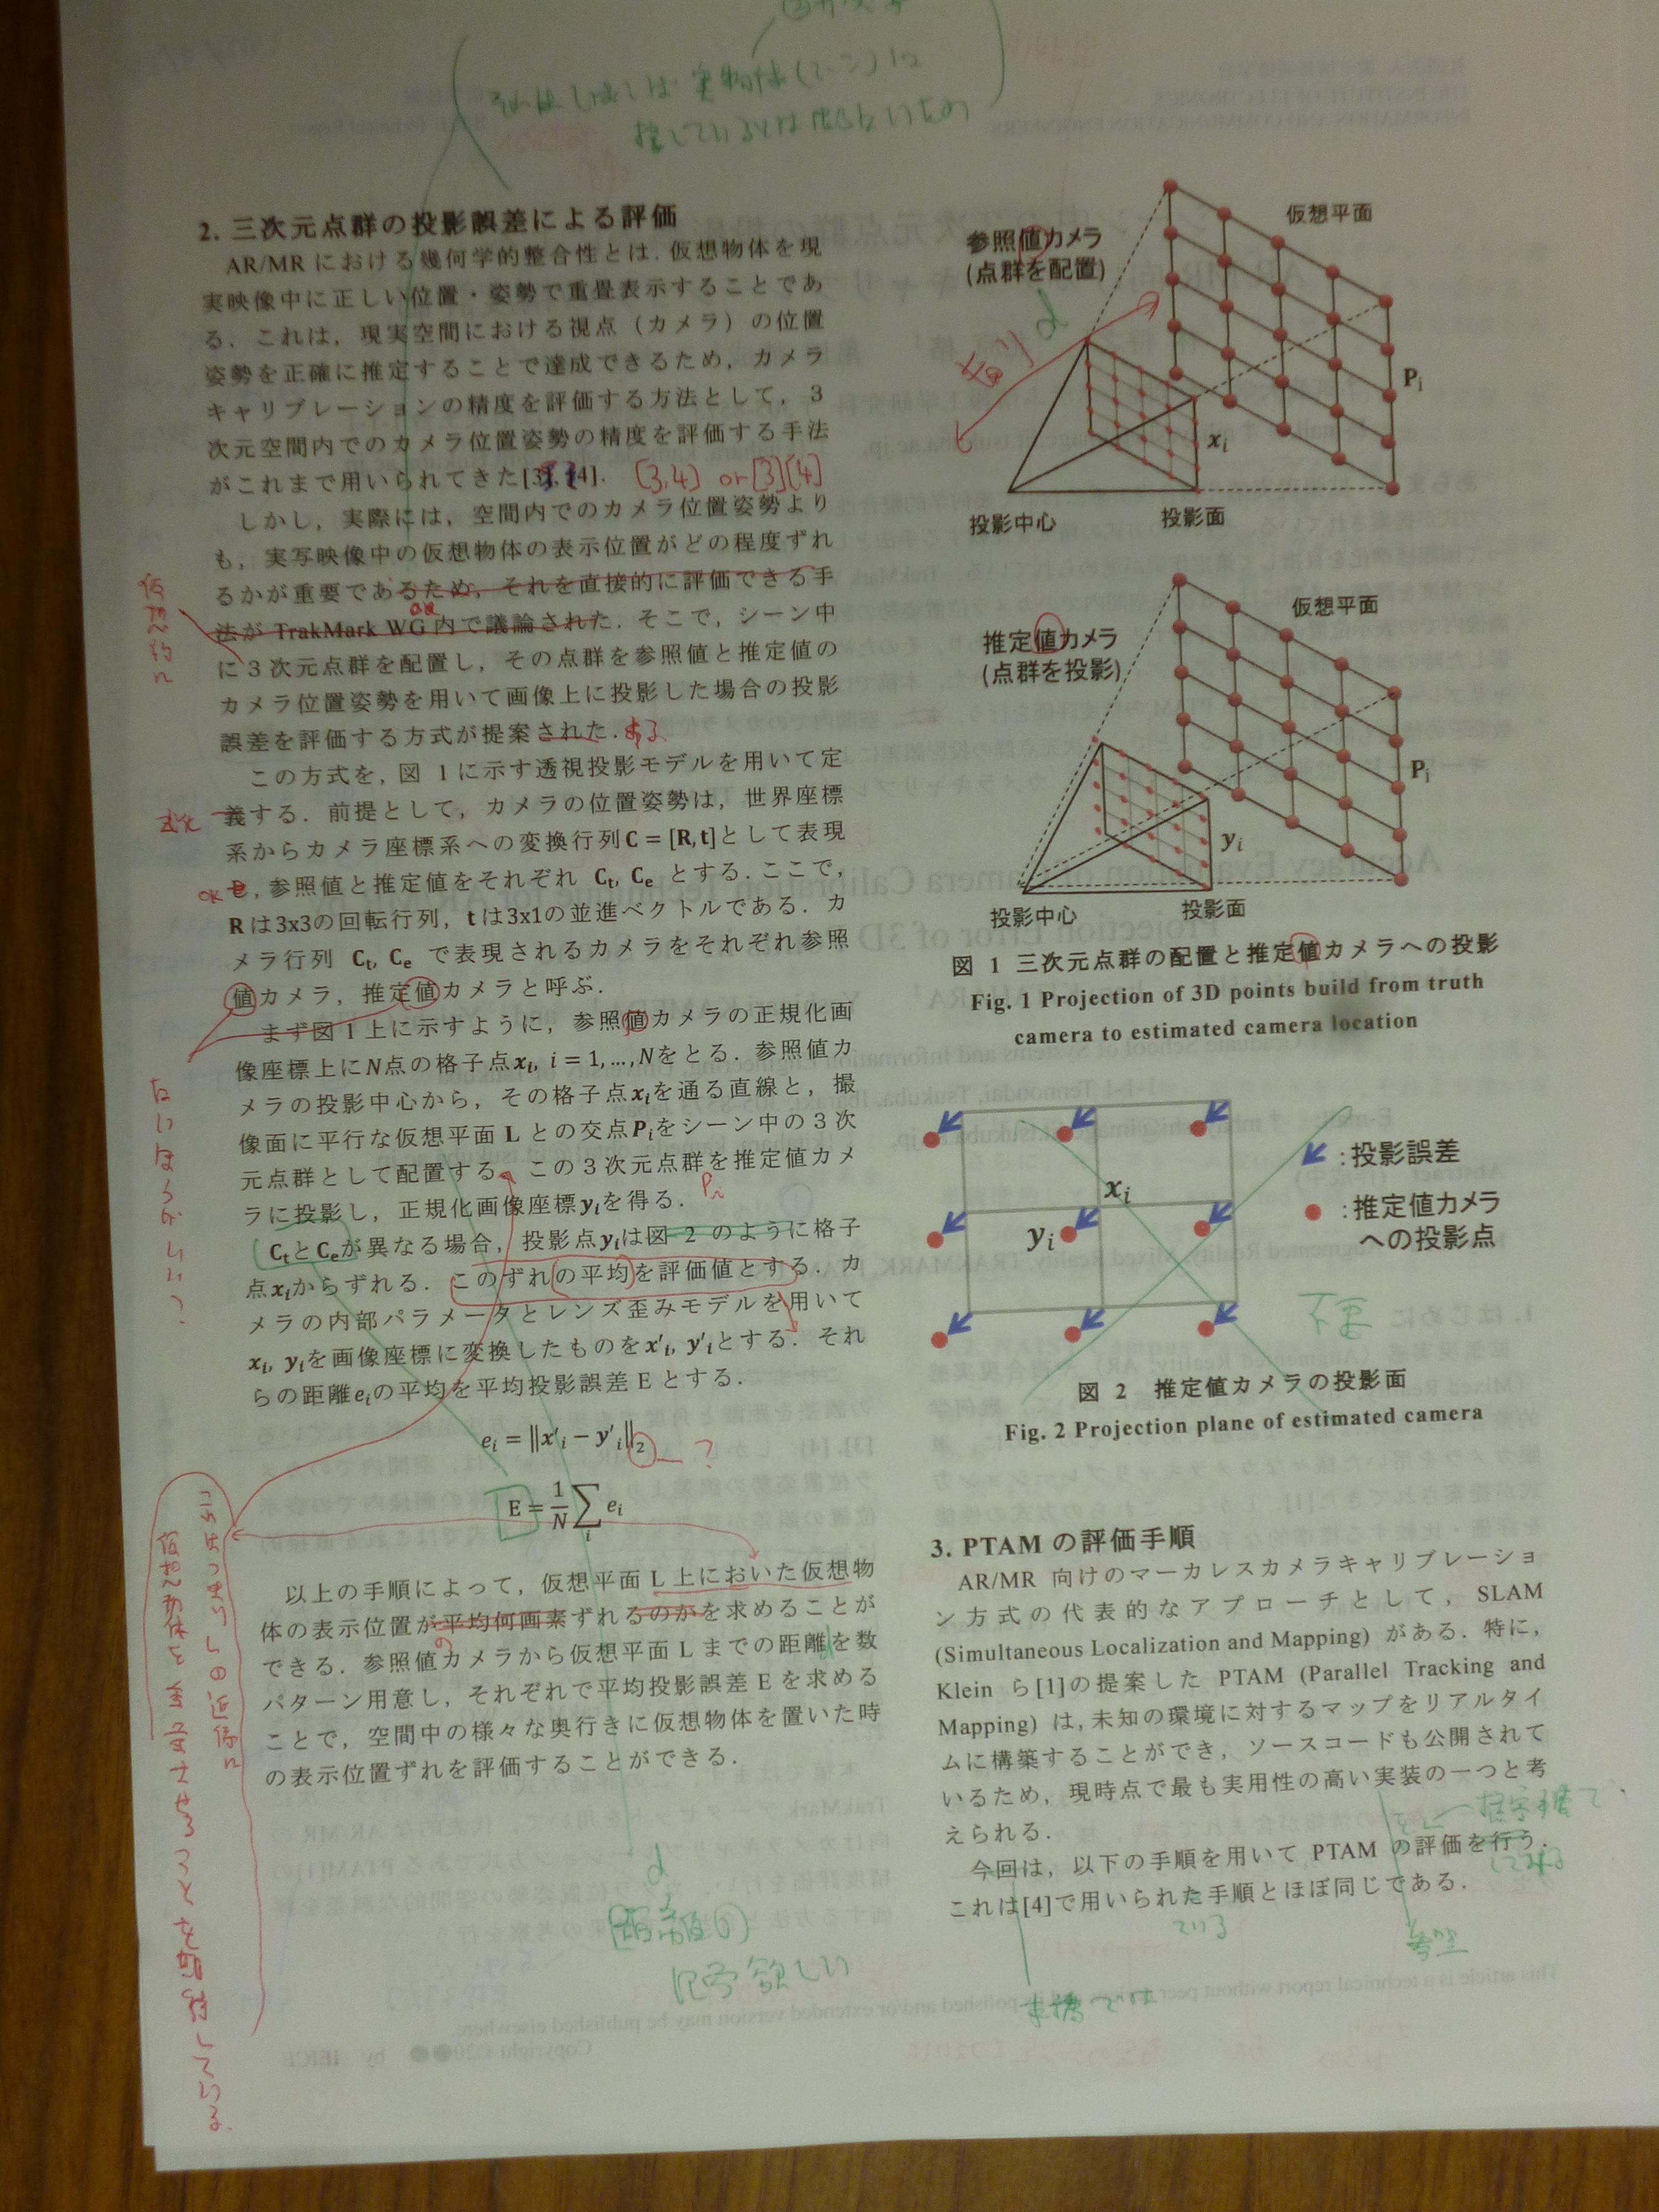 2. 三次元点群の投影誤差による評価
AR/MR における幾何学的整合性とは, 仮想物体を現
実映像中に正しい位置・姿勢で重畳表示することであ
る. これは, 現実空間における視点（カメラ）の位置
姿勢を正確に推定することで達成できるため, カメラ
キャリブレーションの精度を評価する方法として, 3
次元空間内でのカメラ位置姿勢の精度を評価する手法
がこれまで用いられてきた[3], [4]. [3,4] or [3][4]
しかし, 実際には, 空間内でのカメラ位置姿勢より
も, 実写映像中の仮想物体の表示位置がどの程度ずれ
るかが重要であるため, それを直接的に評価できる手
法が TrakMark WG 内で議論された. そこで, シーン中
に3次元点群を配置し, その点群を参照値と推定値の
カメラ位置姿勢を用いて画像上に投影した場合の投影
誤差を評価する方式が提案された. ある
この方式を, 図 1 に示す透視投影モデルを用いて定
義する. 前提として, カメラの位置姿勢は, 世界座標
系からカメラ座標系への変換行列C = [R, t]として表現
し, 参照値と推定値をそれぞれ Ct, Ce とする. ここで,
Rは3x3の回転行列, tは3x1の並進ベクトルである. カ
メラ行列 Ct, Ce で表現されるカメラをそれぞれ参照
値カメラ, 推定値カメラと呼ぶ.
まず図1上に示すように, 参照値カメラの正規化画
像座標上にN点の格子点xi, i = 1, …, Nをとる. 参照値カ
メラの投影中心から, その格子点xiを通る直線と, 撮
像面に平行な仮想平面 L との交点Piをシーン中の3次
元点群として配置する。この3次元点群を推定値カメ
ラに投影し, 正規化画像座標yiを得る. Pi
CtとCeが異なる場合, 投影点yiは図 2 のように格子
点xiからずれる. このずれの平均を評価値とする. カ
メラの内部パラメータとレンズ歪みモデルを用いて
xi, yiを画像座標に変換したものをx'i, y'iとする. それ
らの距離eiの平均を平均投影誤差 E とする.
ei = ‖x'i − y'i‖2 ?
E = 1/N Σi ei
以上の手順によって, 仮想平面 L 上においた仮想物
体の表示位置が平均何画素ずれるのかを求めることが
できる. 参照値カメラから仮想平面 L までの距離を数
パターン用意し, それぞれで平均投影誤差 E を求める
ことで, 空間中の様々な奥行きに仮想物体を置いた時
の表示位置ずれを評価することができる.
d
記号欲しい
仮想的に
ない ほうが いい?
これは つまり Lの近傍に
仮想物体を
参照値カメラ
(点群を配置)
d
仮想平面
Pi
xi
投影中心
投影面
推定値カメラ
(点群を投影)
仮想平面
Pi
yi
投影中心
投影面
図 1 三次元点群の配置と推定値カメラへの投影
Fig. 1 Projection of 3D points build from truth
camera to estimated camera location
xi
yi
:投影誤差
:推定値カメラ
への投影点
不要
図 2 推定値カメラの投影面
Fig. 2 Projection plane of estimated camera
3. PTAM の評価手順
AR/MR 向けのマーカレスカメラキャリブレーショ
ン方式の代表的なアプローチとして, SLAM
(Simultaneous Localization and Mapping) がある. 特に,
Klein ら[1]の提案した PTAM (Parallel Tracking and
Mapping) は, 未知の環境に対するマップをリアルタイ
ムに構築することができ, ソースコードも公開されて
いるため, 現時点で最も実用性の高い実装の一つと考
えられる.
今回は, 以下の手順を用いて PTAM の評価を行う.
これは[4]で用いられた手順とほぼ同じである.
ている
本稿では